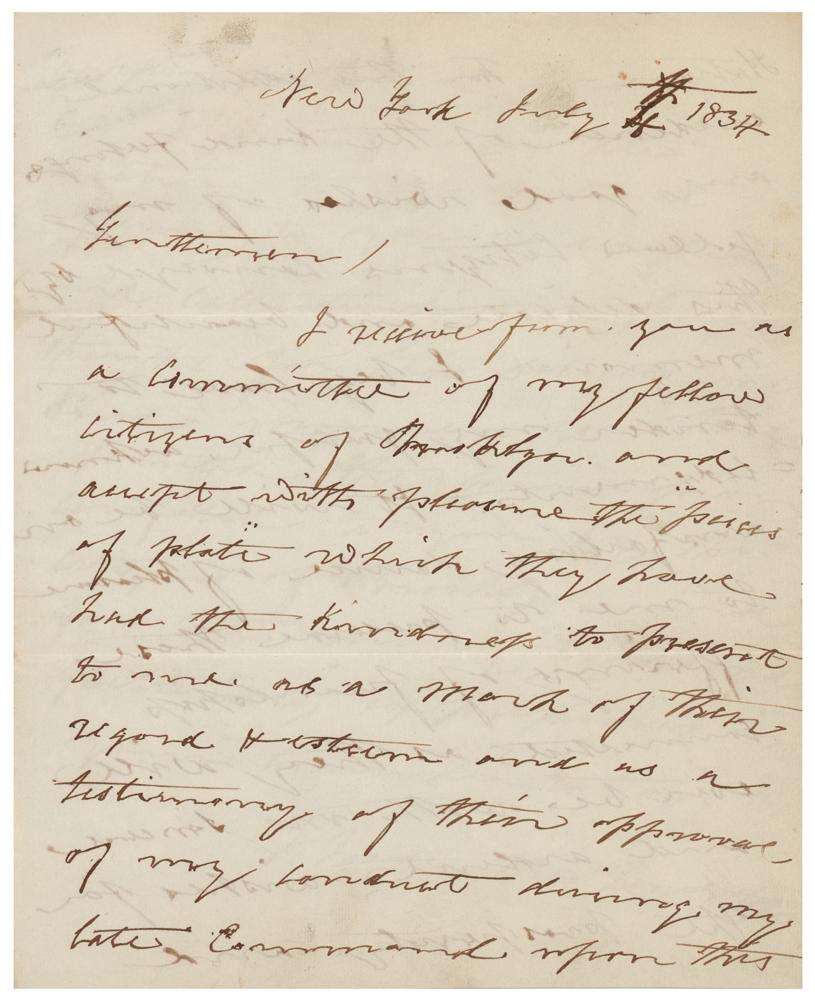 New York July 4 1834
Gentlemen /
I receive from you as
a Committee of my fellow
citizens of Brooklyn. and
accept with pleasure the "pieces
of plate" which they have
had the kindness to present
to me as a mark of their
regard & esteem and as a
testimony of their approval
of my conduct during my
late Command upon this